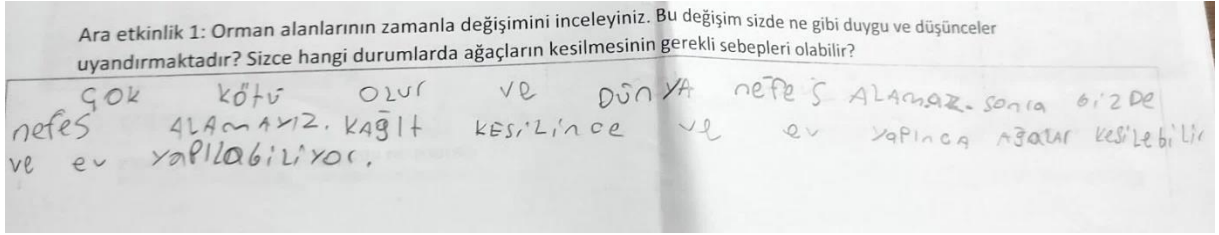 Ara etkinlik 1: Orman alanlarının zamanla değişimini inceleyiniz. Bu değişim sizde ne gibi duygu ve düşünceler
uyandırmaktadır? Sizce hangi durumlarda ağaçların kesilmesinin gerekli sebepleri olabilir?
ÇOK kötü OLUr ve DÜNYA nefes ALAmaz. sonra bizDe
nefes ALAmAYIZ. KAğIt KESiLince ve ev yapıncA Ağalar kesiLebiLir
ve ev yaPILabiLiyor.